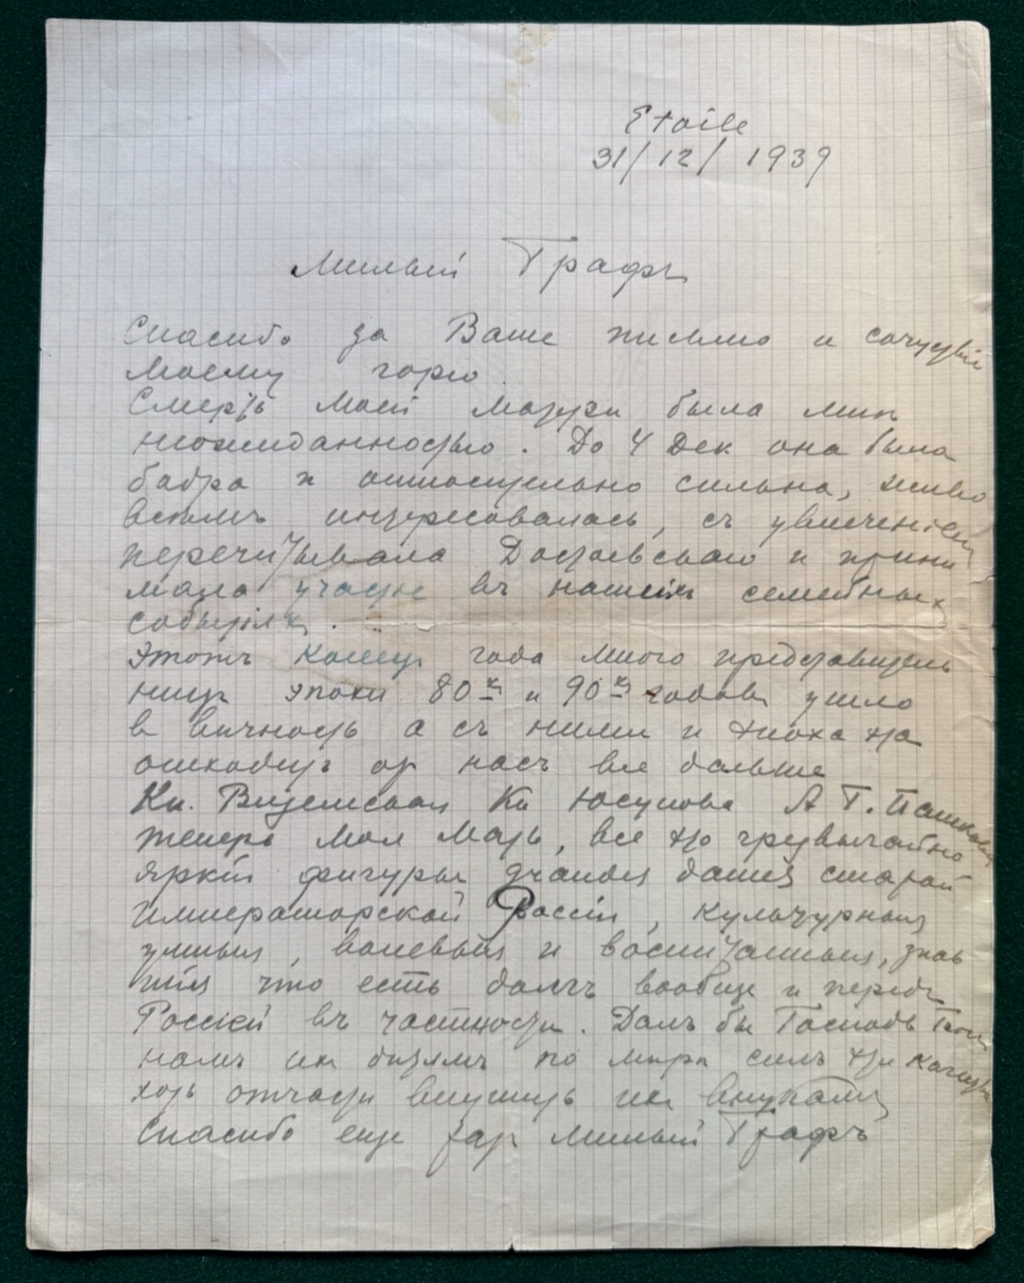 Etoile
31/12/1939
Милый Графъ
Спасибо за Ваше письмо и сочуствіе
моему горю
Смерть моей матери была мнѣ
неожиданностью. До 4 Дек она была
бодра и относительно сильна, живо
всѣмъ интересовалась, съ увлеченіем
перечитывала Достоевскаго и прини
мала участіе въ нашихъ семейных
событіях.
Этотъ конец года много представитель
ниц эпохи 80х и 90х годовъ ушло
в вѣчность а съ ними и эпоха эта
отходитъ от насъ все дальше
Кн. Вяземская Кн Юсупова А Г. Пашкова
теперь моя мать, все это чрезвычайно
яркія фигуры grandes dames старой
Императорской Россіи, культурныя
умныя, волевыя и воспитанныя, знав
шія что есть долгъ вообще и передъ
Россіей въ частности. Далъ бы Господь
намъ их дѣтямъ по мѣрѣ силъ эти качества
хоть отчасти внушить их внукамъ
Спасибо еще раз милый Графъ